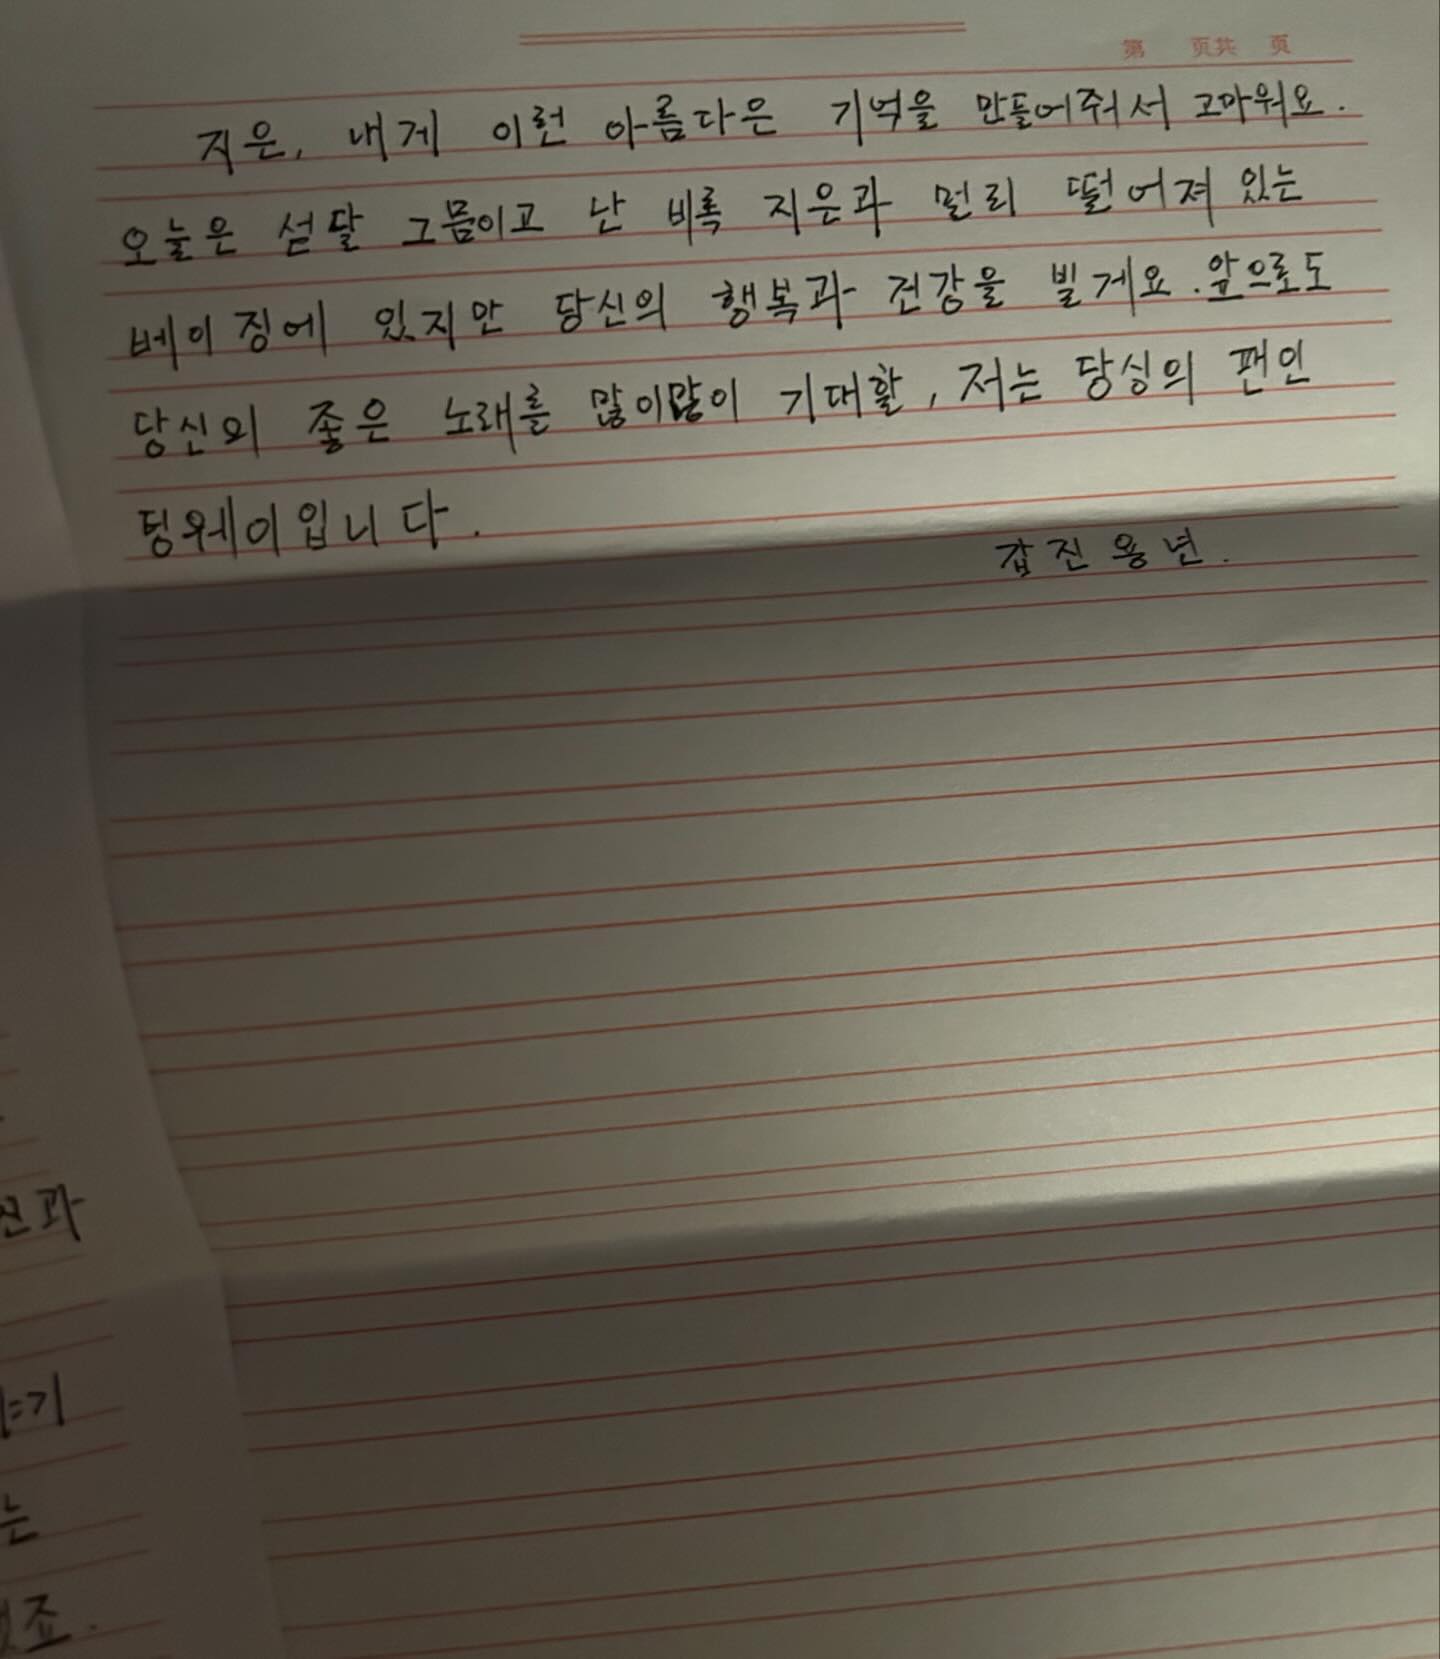 第 页共 页
지은, 내게 이런 아름다은 기억을 만들어줘서 고마워요.
오늘은 섣달 그믐이고 난 비록 지은과 멀리 떨어져 있는
베이징에 있지만 당신의 행복과 건강을 빌게요. 앞으로도
당신의 좋은 노래를 많이많이 기대할, 저는 당싱의 팬인
팅웨이입니다.
갑진용년.
과
기
는
죠.